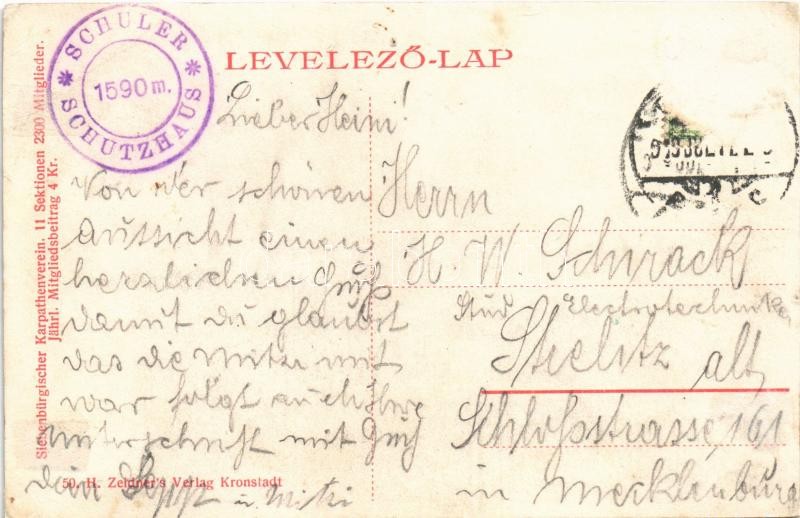 SCHULER
1590 m.
SCHUTZHAUS
LEVELEZŐ-LAP
Siebenbürgischer Karpathenverein. 11 Sektionen 2300 Mitglieder.
Jährl. Mitgliedsbeitrag 4 Kr.
Lieber Heini!
Von der schönen
Aussicht einen
herzlichen Gruß
damit du glaubst
das die Mitzi mit
war folgt auch ihre
Unterschrift mit Gruß
dein Seppl u. Mitzi
Herrn
H. W. Schrack
Stud. Electrotechniker
Strelitz alt
Schloßstrasse 161
in Mecklenburg
50. H. Zeidner's Verlag Kronstadt